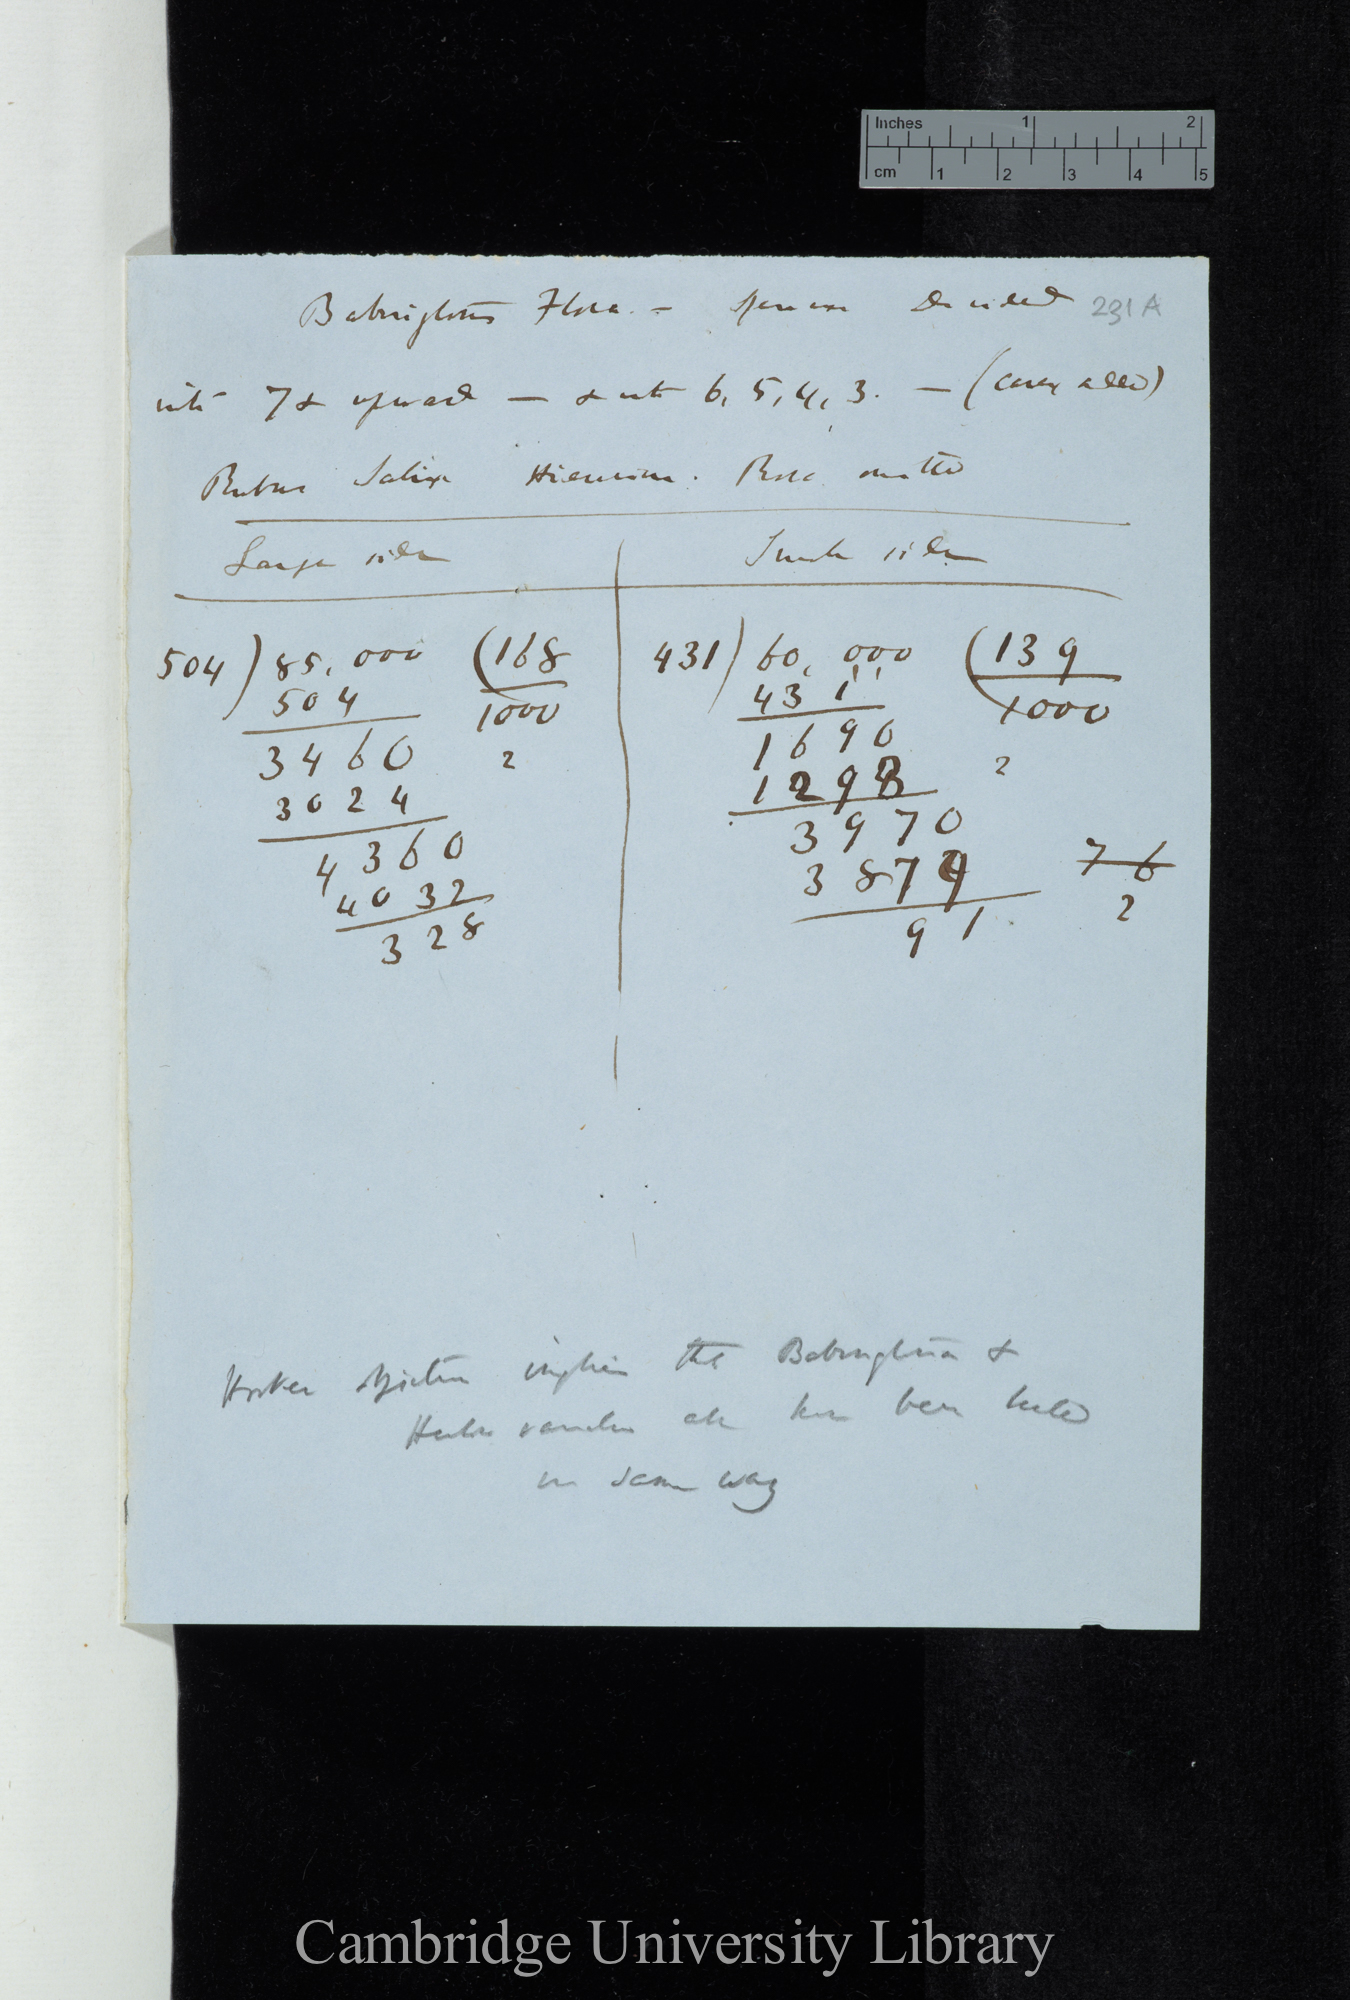 Inches 1 2
cm 1 2 3 4 5
Babington's Flora. — Genera divided 231A
into 7 & upward — & into 6, 5, 4, 3. — (Carex added)
Rubus Salix Hieracium. Rosa omitted
Large side Small side
504 ) 85,000 ( 168 431 ) 60,000 ( 139
504 1000 431 1000
3460 2 1690 2
3024 1293
4360 3970 76
4032 3879 2
328 91
Hooker objection implies that Babington &
been
in same way
Cambridge University Library